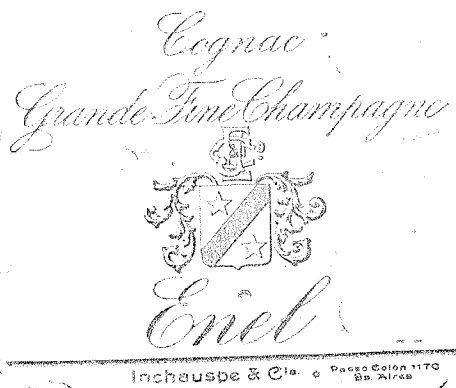 Cognac
Grande Fine Champagne
Enel
Inchauspe & Cia.
Paseo Colón 1170
Bs. Aires